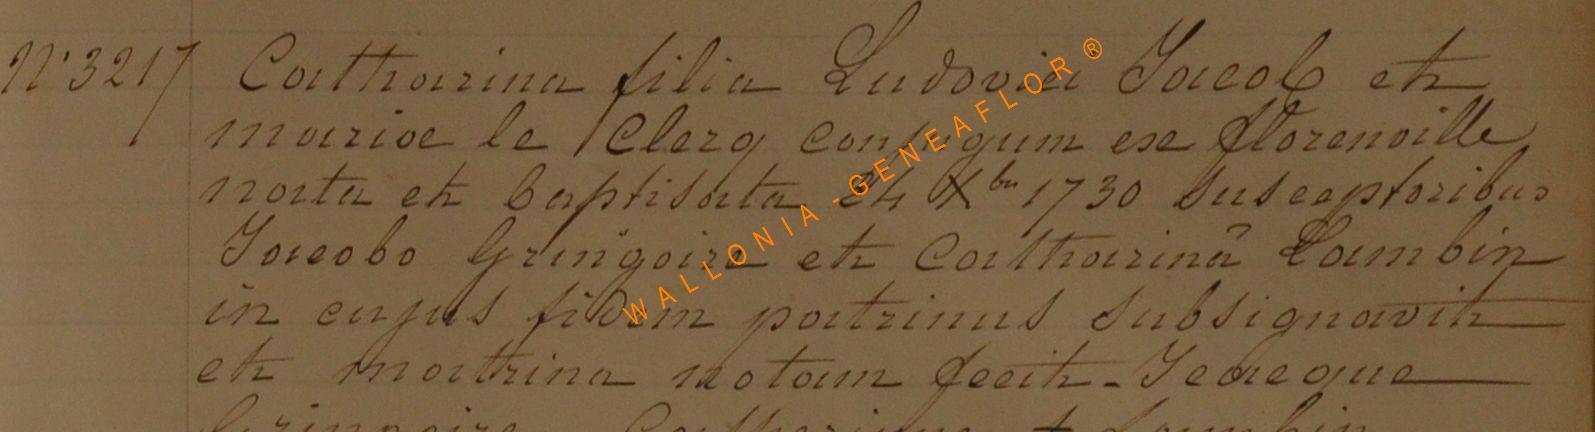 N° 3217 Catharina filia Ludovici Jacob et
mariae le Clerq conjugum ex florenville
nata et baptisata 24 Xbr 1730 susceptoribus
Jacobo Gringoire et Catharinâ Lambin
in cujus fidem patrinus subsignavit
et matrina notam fecit - Jeacque
Gringoire Catherinne + Lambin
WALLONIA - GENEAFLOR ®